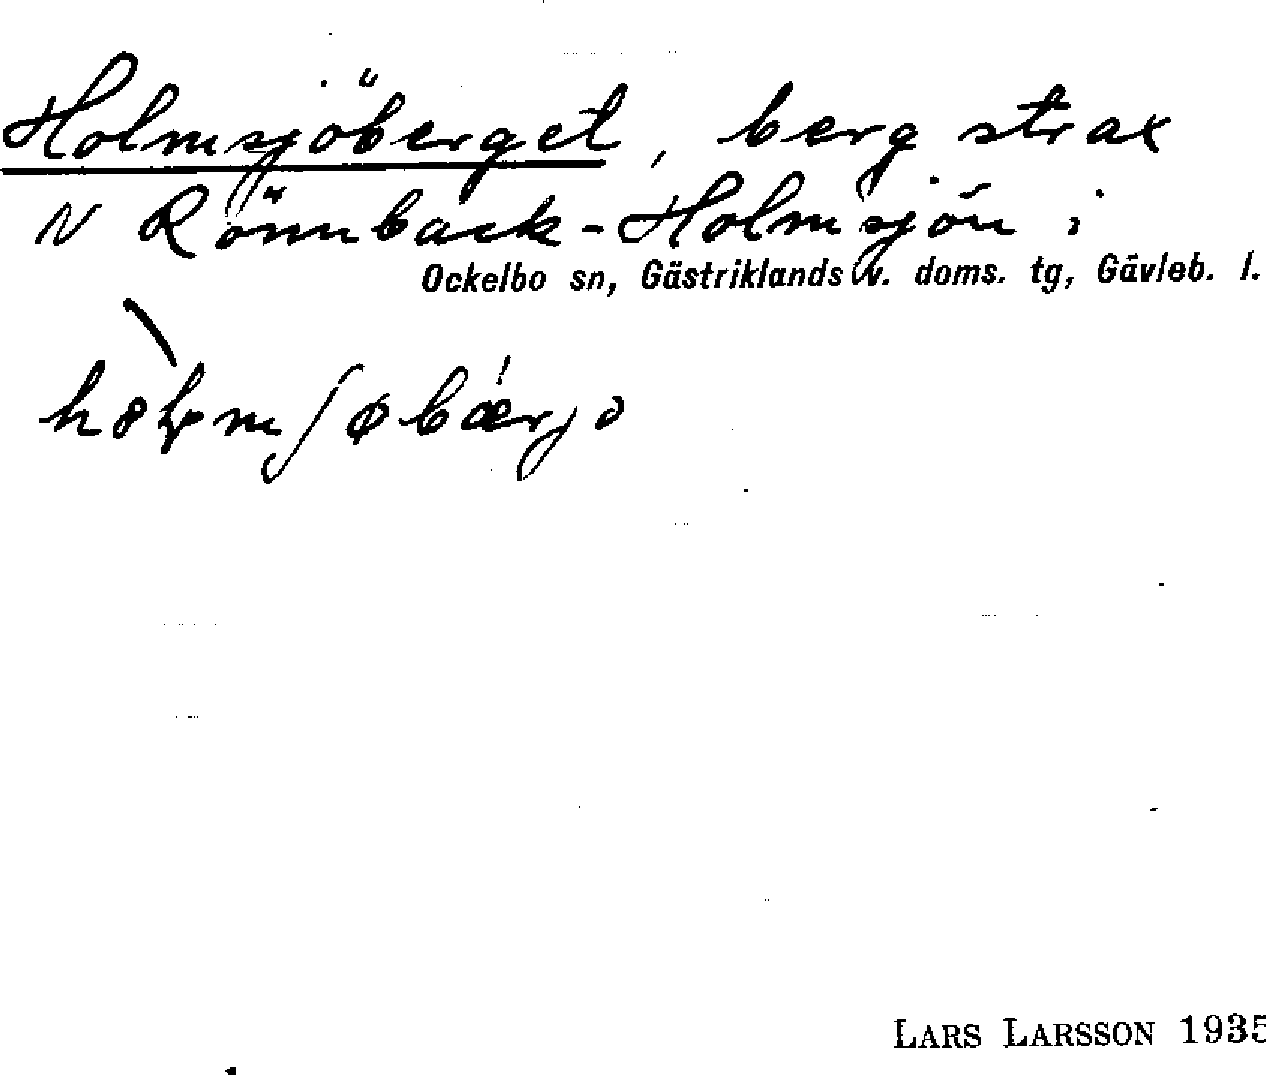 Holmsjöberget, berg strax
N Rönnback-Holmsjön i
Ockelbo sn, Gästriklands v. doms. tg, Gävleb. l.
LARS LARSSON 1935